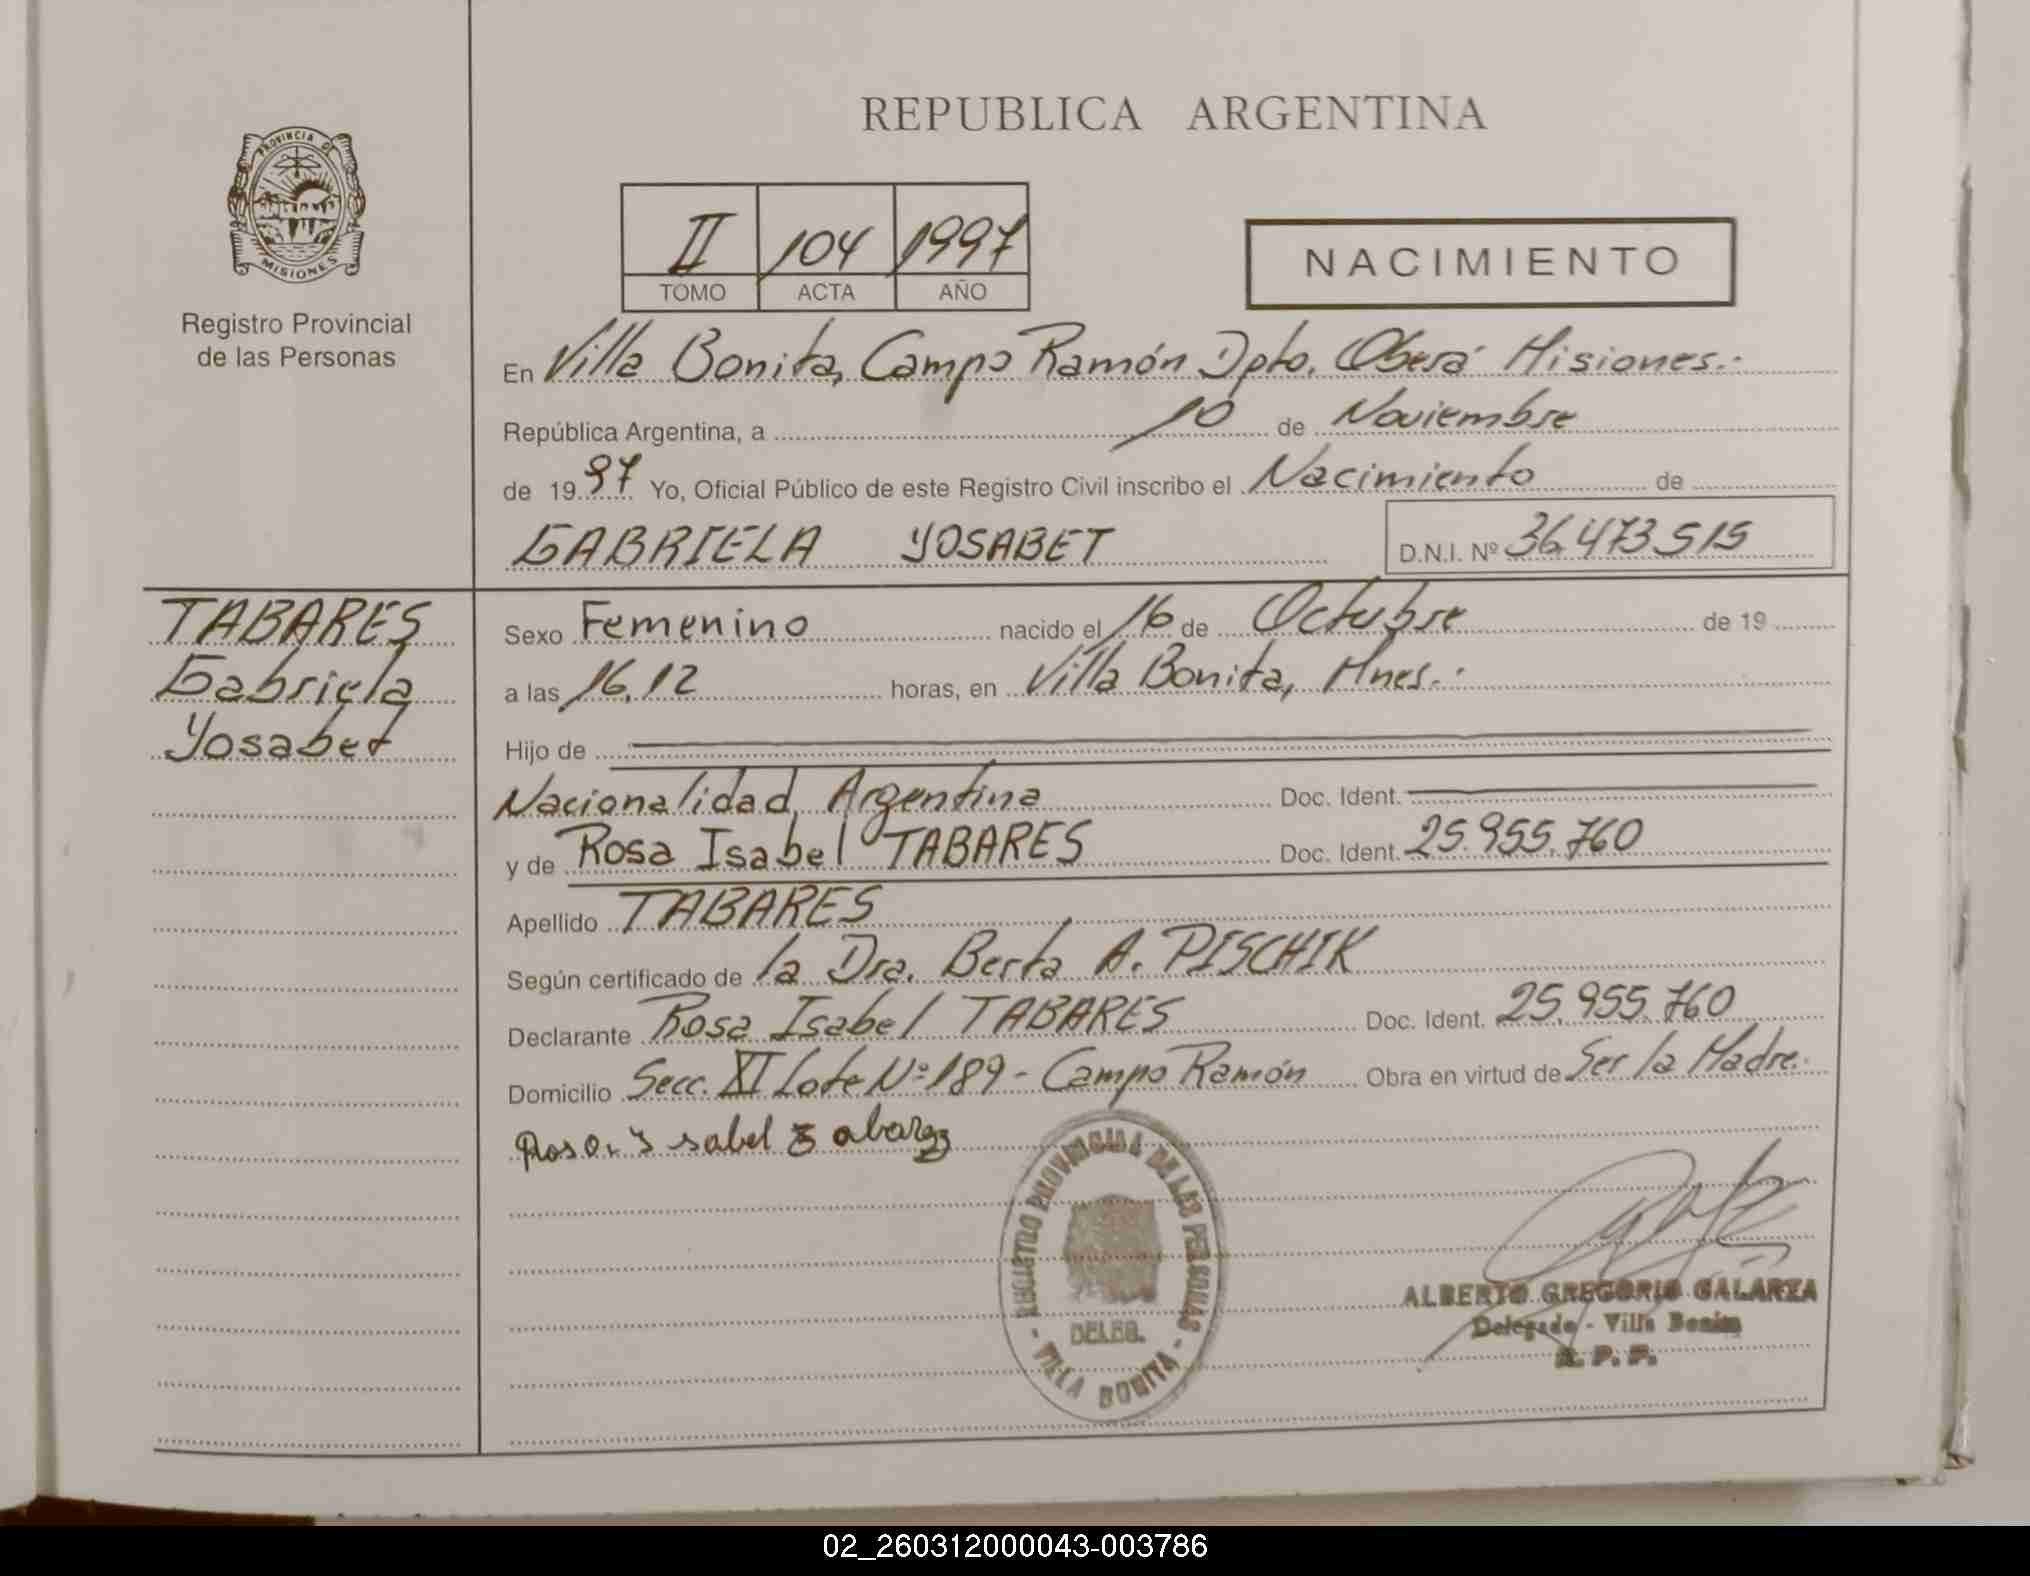 REPUBLICA ARGENTINA
PROVINCIA DE
MISIONES
Registro Provincial
de las Personas
II 104 1997
TOMO ACTA AÑO
NACIMIENTO
En Villa Bonita, Campo Ramón Dpto. Oberá Misiones.-
República Argentina, a 10 de Noviembre
de 1997 Yo, Oficial Público de este Registro Civil inscribo el Nacimiento de
GABRIELA YOSABET D.N.I. Nº 36.473.515
TABARES
Gabriela
Yosabet
Sexo Femenino nacido el 16 de Octubre de 19
a las 16,12 horas, en Villa Bonita, Mnes.-
Hijo de
Nacionalidad Argentina Doc. Ident.
y de Rosa Isabel TABARES Doc. Ident. 25.955.760
Apellido TABARES
Según certificado de la Dra. Berta A. PISCHIK
Declarante Rosa Isabel TABARES Doc. Ident. 25.955.760
Domicilio Secc. XI Lote Nº 189 - Campo Ramón Obra en virtud de Ser la Madre.
Rosa Ysabel Tabarez
REGISTRO PROVINCIAL DE LAS PERSONAS
DELEG.
- VILLA BONITA -
ALBERTO GREGORIO GALARZA
Delegado - Villa Bonita
R. P. P.
02_260312000043-003786